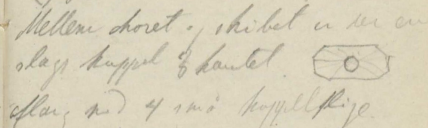 Mellem choret og skibet er der en
slags kuppel 8 kantet
aflang med 4 små kuppelflige